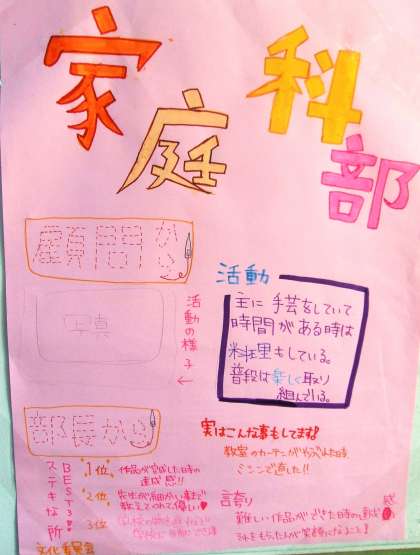 家庭科部
顧問から
写真
活動の様子
部長から
活動
主に手芸をしていて
時間がある時は
料理もしている。
普段は楽しく取り
組んでいる。
実はこんな事もしてます!
教室のカーテンがやぶれた時
ミシンで直した!!
BEST3!!
ステキな所
1位 作品が完成した時の
達成感!!
2位 先生が細かい事まで
教えてくれて優しい
3位
誇り
難しい作品ができた時の達成感
それをもらった人が笑顔になること!
文化委員会